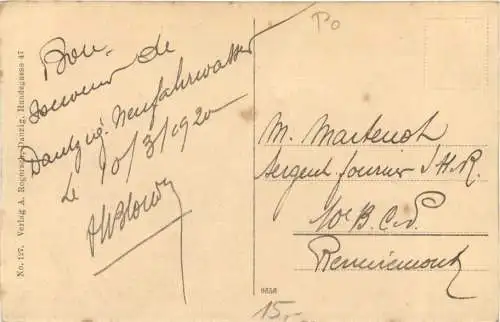 Po
Bon
souvenir de
Dantzig. Neufahrwasser
Le 10/3/1920
M. Martenot
Sergent fourrier S.H.R.
10e B.C.P.
Remiremont
No. 127. Verlag A. Rogorsch, Danzig, Hundegasse 47
15,-